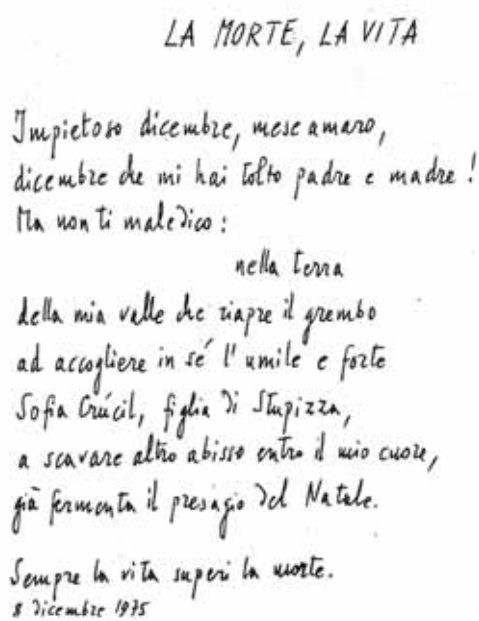 LA MORTE, LA VITA
Impietoso dicembre, mese amaro,
dicembre che mi hai tolto padre e madre!
Ma non ti maledico:
nella terra
della mia valle che riapre il grembo
ad accogliere in sé l'umile e forte
Sofia Crúcil, figlia di Stupizza,
a scavare altro abisso entro il mio cuore,
già fermenta il presagio del Natale.
Sempre la vita superi la morte.
8 dicembre 1975